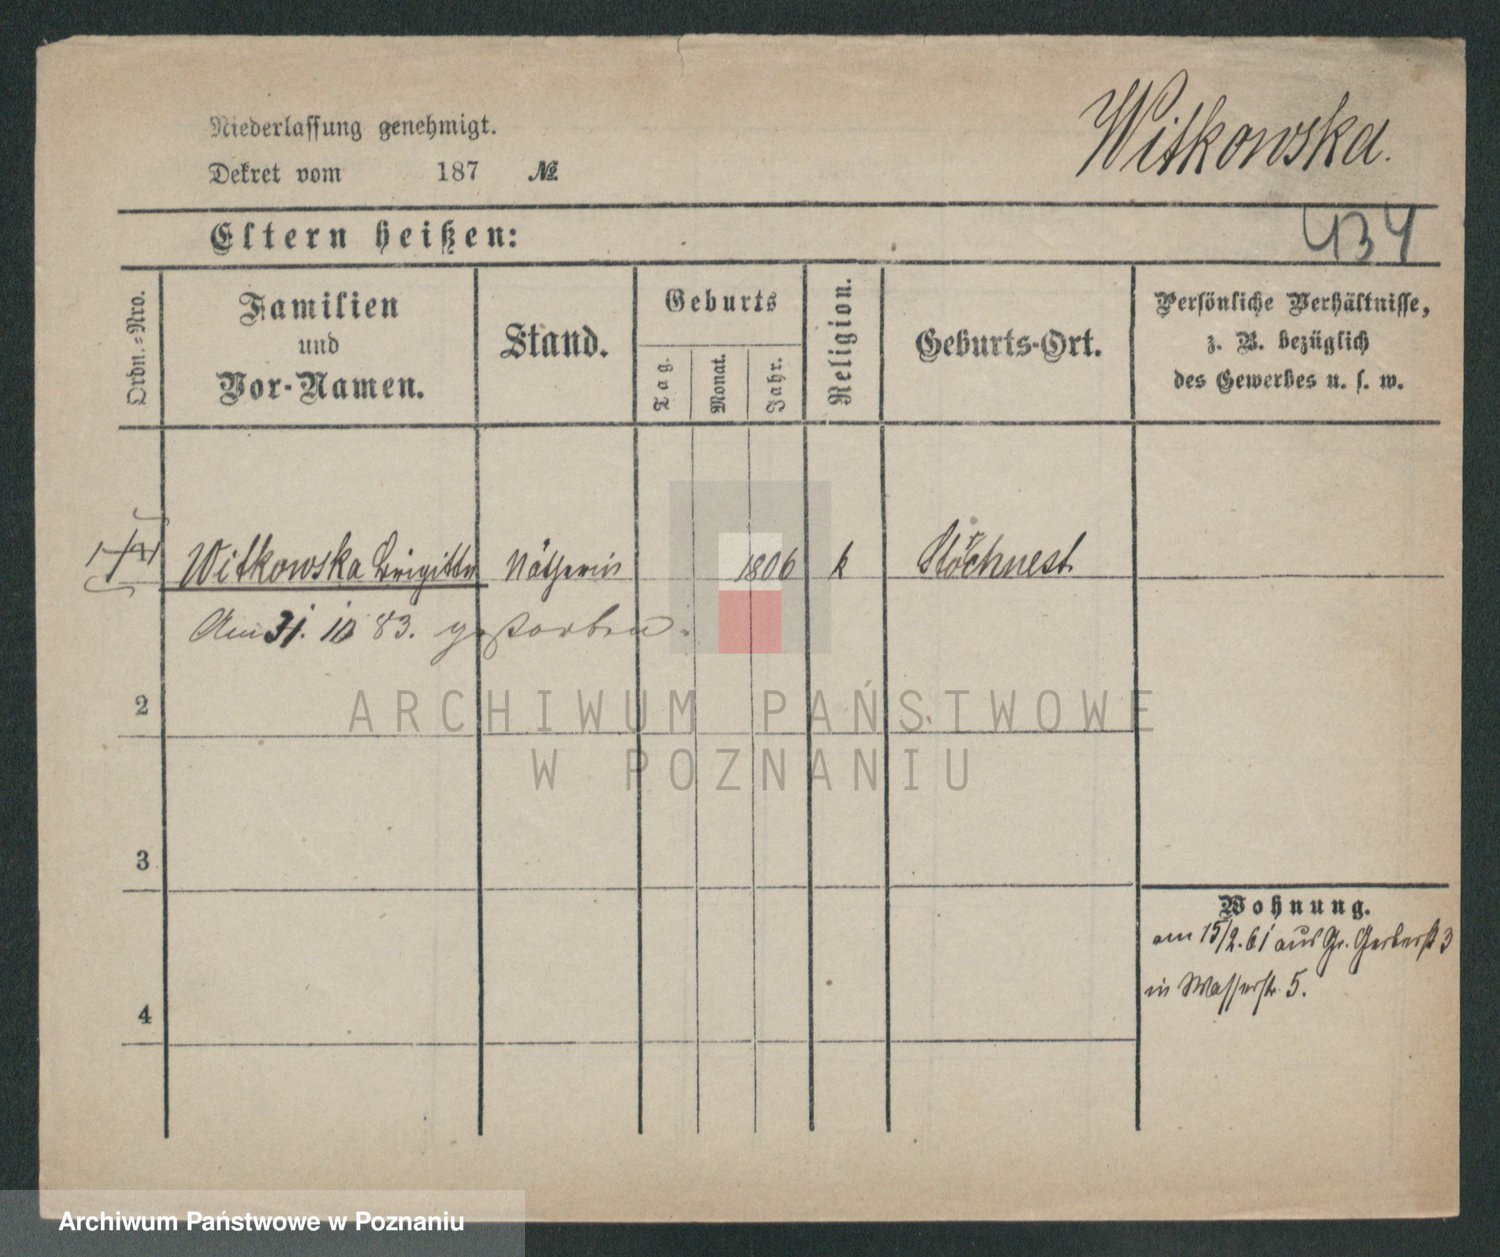 Niederlassung genehmigt.
Witkowska.
Dekret vom 187 №
Eltern heißen:
434
Ordn.-Nro.
Familien
und
Vor-Namen.
Stand.
Geburts
Tag.
Monat.
Jahr.
Religion.
Geburts-Ort.
Persönliche Verhältnisse,
z. B. bezüglich
des Gewerbes u. s. w.
Witkowska Brigitta Nätherin 1806 k
Am 31. 10 83. gestorben.
2
3
4
Wohnung.
am 15/2.61 aus Gr. Gerberstr 3
in Wasserstr. 5.
ARCHIWUM PAŃSTWOWE
W POZNANIU
Archiwum Państwowe w Poznaniu